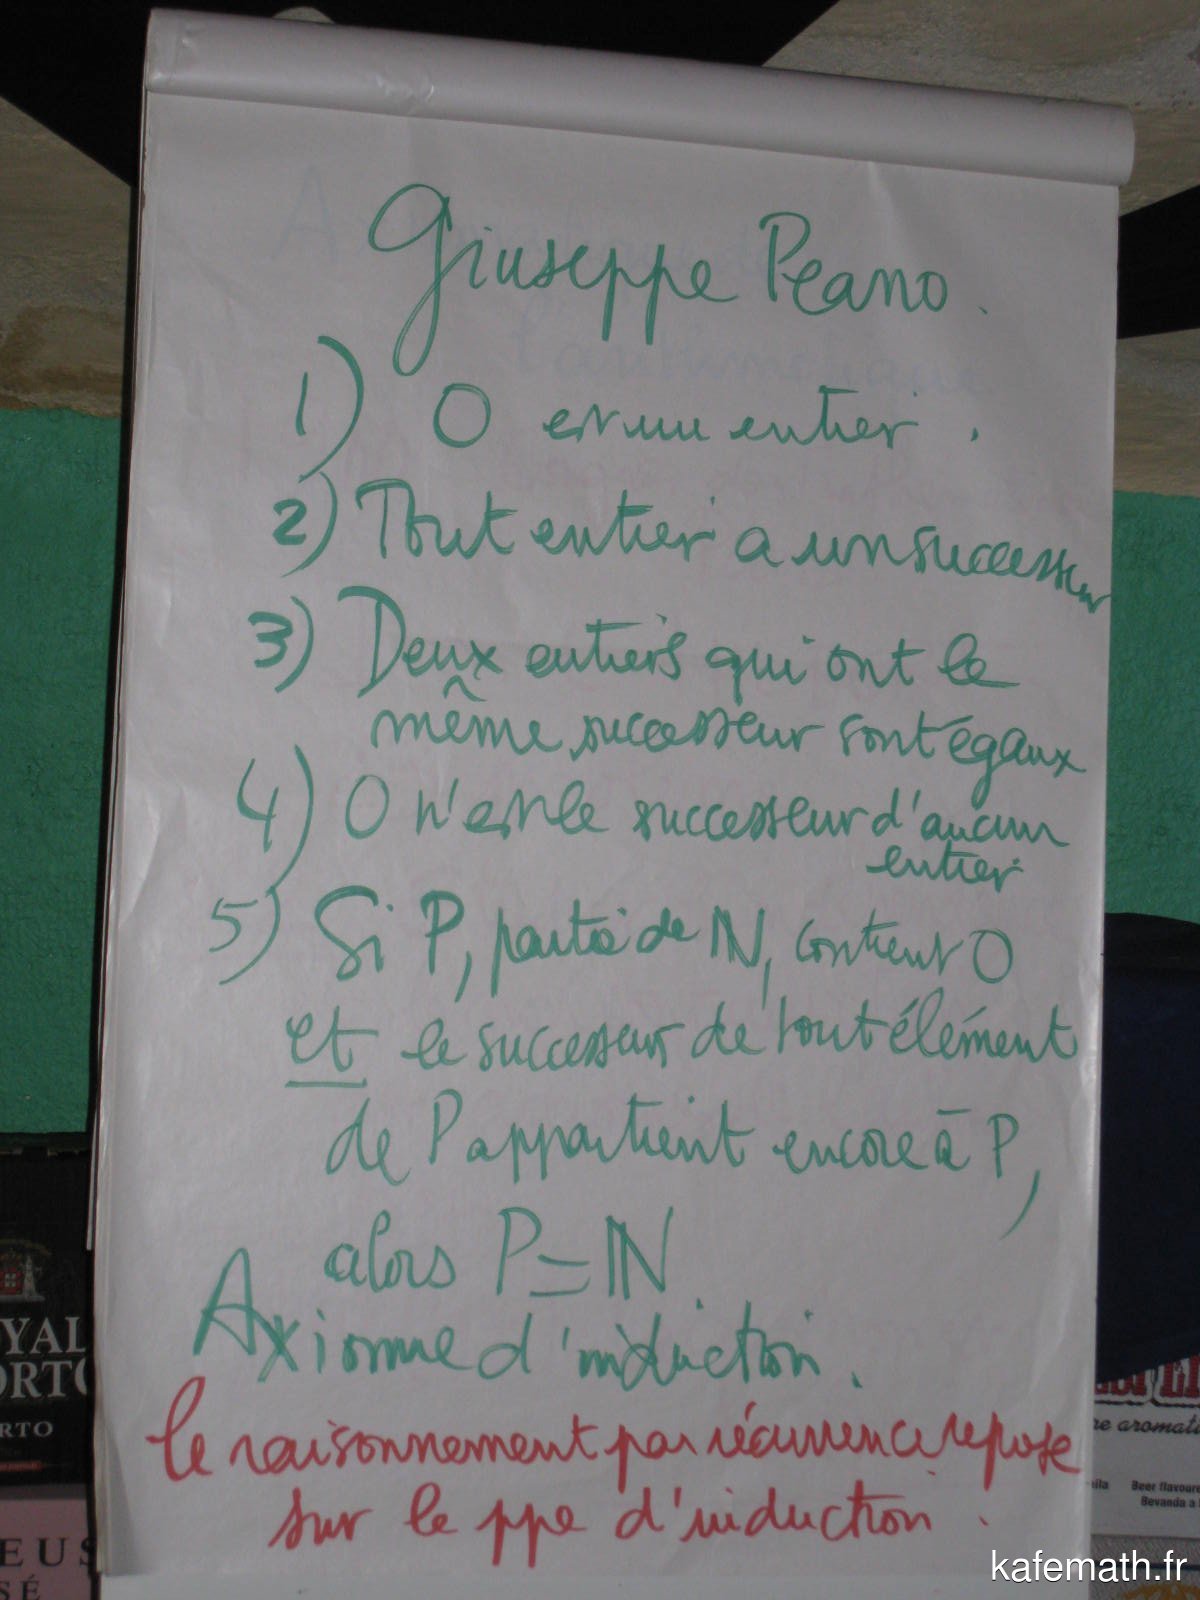 Giuseppe Peano.
1) 0 est un entier.
2) Tout entier a un successeur
3) Deux entiers qui ont le
même successeur sont égaux
4) 0 n'est le successeur d'aucun
entier.
5) Si P, partie de ℕ, contient 0
et le successeur de tout élément
de P appartient encore à P,
alors P = ℕ
Axiome d'induction.
le raisonnement par récurrence repose
sur le ppe d'induction.
YAL
ORTO
ORTO
EUS
SÉ
re aromati
Beer flavoure
Bevanda a
kafemath.fr